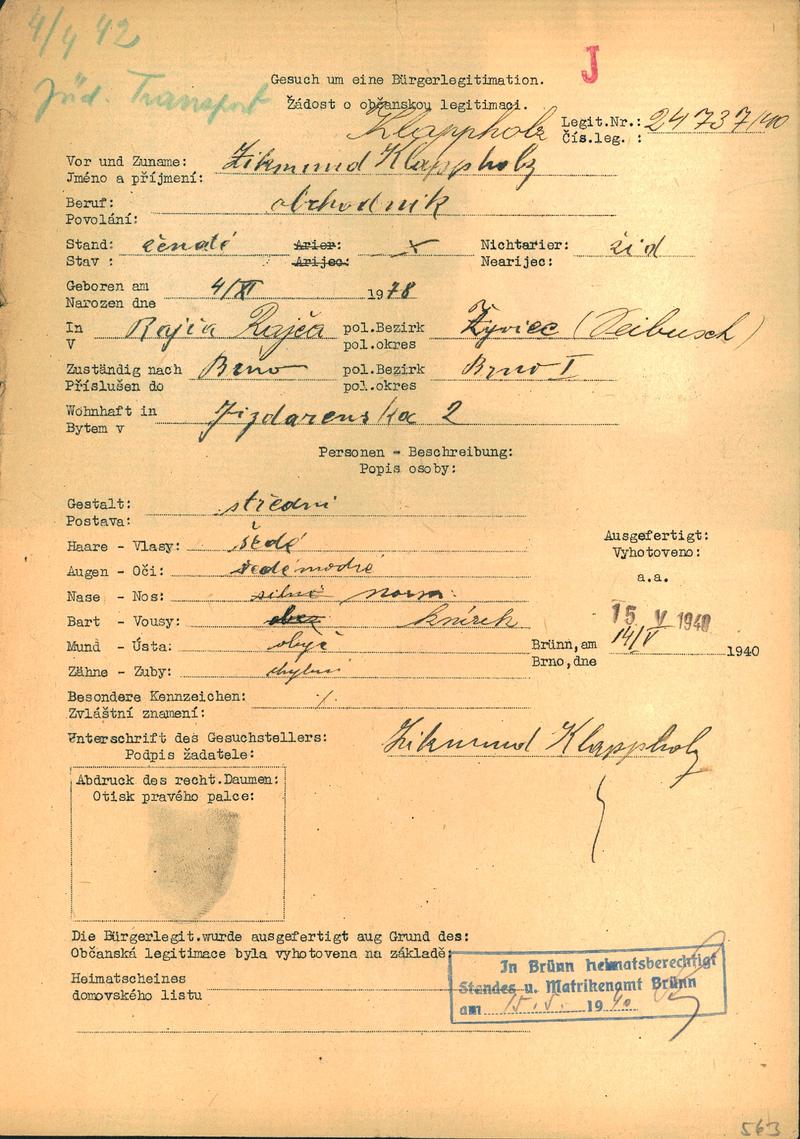 4/4 42
Jüd. Transport
J
Gesuch um eine Bürgerlegitimation.
Žádost o občanskou legitimaci.
Klappholz
Legit.Nr.: 24737/40
Čís.leg. :
Vor und Zuname: Zikmund Klappholz
Jméno a příjmení:
Beruf: obchodník
Povolání:
Stand: ženatý Arier: Nichtarier: žid
Stav : Arijec: Nearijec:
Geboren am 4/XI 1978
Narozen dne
In Rajča Rajča pol.Bezirk Żywiec (Seibusch)
V pol.okres
Zuständig nach Brno pol.Bezirk Brno I
Příslušen do pol.okres
Wohnhaft in Jizdarenska 2
Bytem v
Personen - Beschreibung:
Popis osoby:
Gestalt: střední
Postava:
Haare - Vlasy: šedé
Augen - Oči: šedémodré
Nase - Nos: silně norm.
Bart - Vousy: obez knírek
Mund - Ústa: obyč
Zähne - Zuby: chybní
Ausgefertigt:
Vyhotoveno:
a.a.
15 V 1940
Brünn,am 14/V 1940
Brno,dne
Besondere Kennzeichen: ./.
Zvláštní znamení:
Unterschrift des Gesuchstellers: Zikmund Klappholz
Podpis žadatele:
Abdruck des recht.Daumen:
Otisk pravého palce:
Die Bürgerlegit.wurde ausgefertigt aug Grund des:
Občanská legitimace byla vyhotovena na základě:
Heimatscheines
domovského listu
In Brünn heimatsberechtigt
Standes u. Matrikenamt Brünn
am 15.5. 1940
563